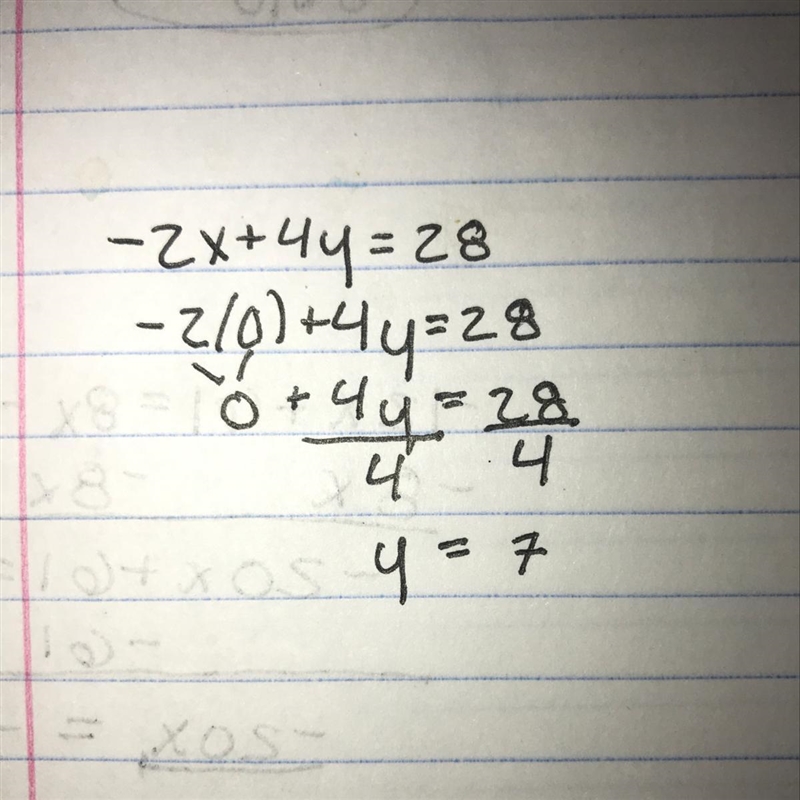 -2x+4y=28
-2(0)+4y=28
0 + 4y = 28
4 4
y = 7